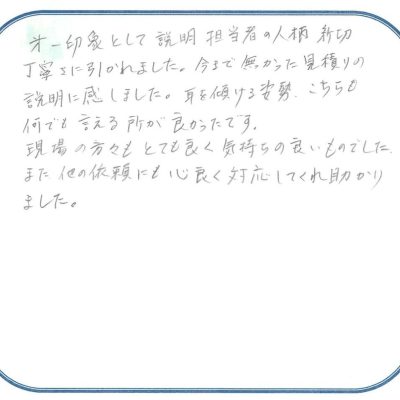 第一印象として説明 担当者の人柄 親切
丁寧さに引かれました。今まで無かった見積りの
説明に感じました。耳を傾ける姿勢、こちらも
何でも言える所が良かったです。
現場の方々もとても良く気持ちの良いものでした。
また他の依頼にも心良く対応してくれ助かり
ました。